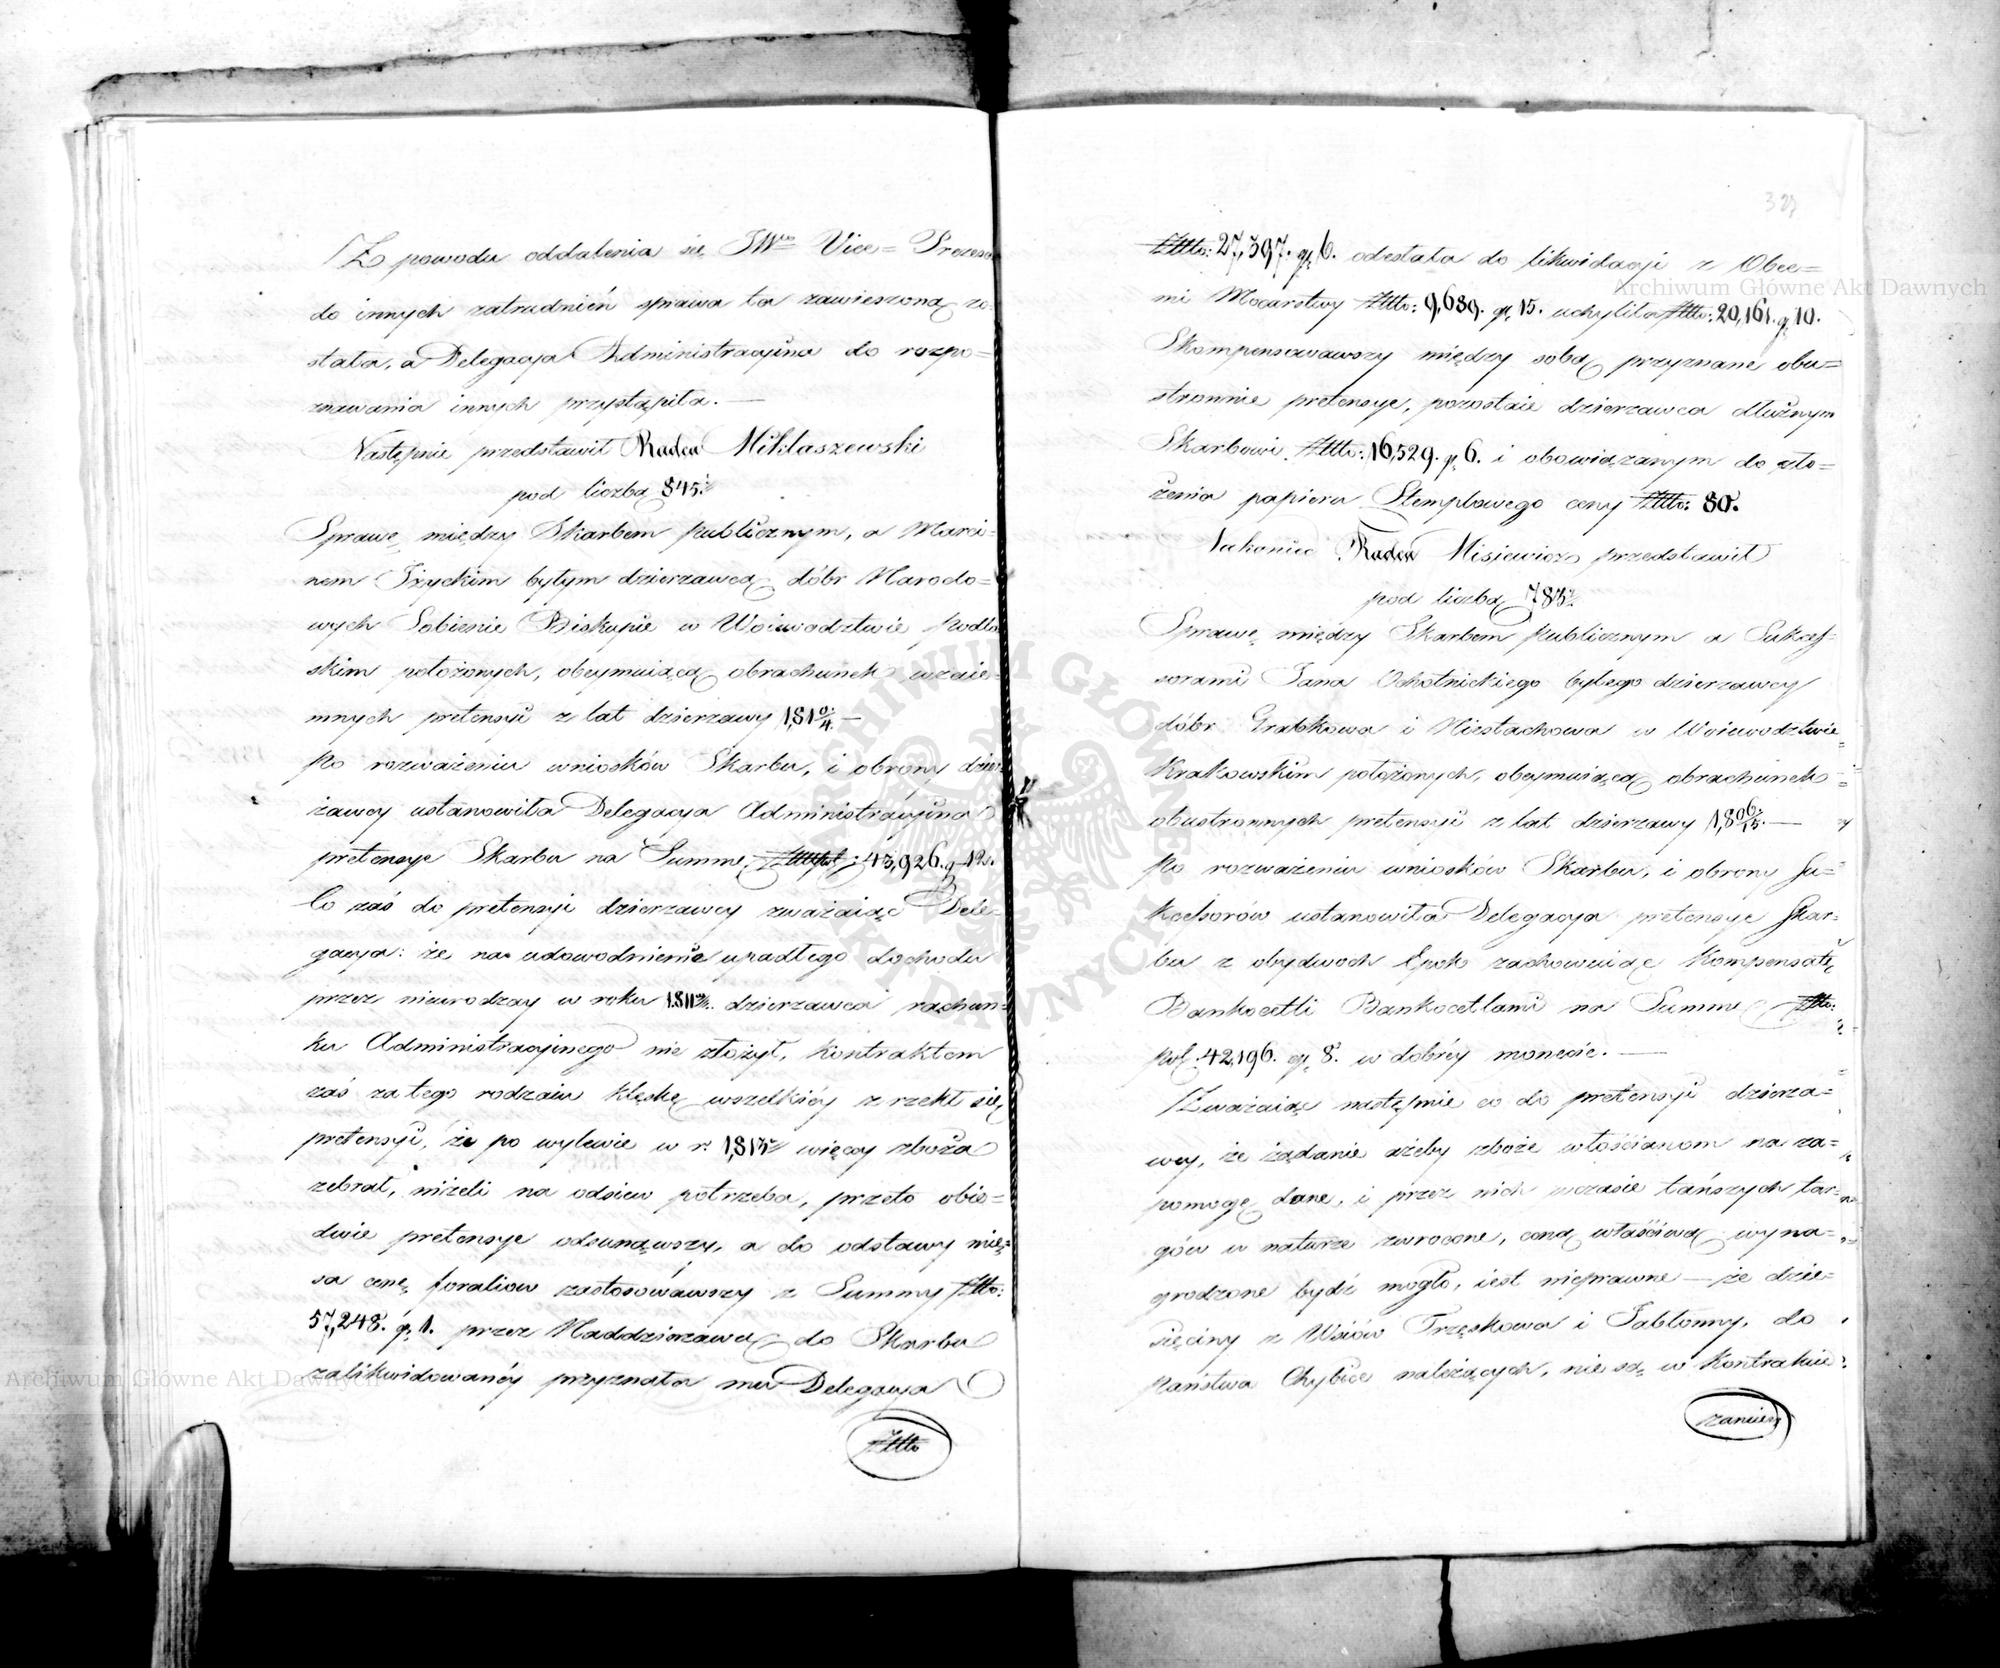 Z powodu oddalenia się JWgo Vice= Prezesa
do innych zatrudnień sprawa ta zawieszoną zo=
stała, a Delegacya Administracyina do rozpo=
znawania innych przystąpiła. —
Następnie przedstawił Radca Miklaszewski
pod liczbą 845.
Sprawę między Skarbem publicznym, a Marci=
nem Iżyckim byłym dzierzawcą dóbr Narodo=
wych Sobienie Biskupie w Woiewodztwie Podla
skim położonych, obeymuiącą obrachunek wzaie=
mnych pretensyi z lat dzierzawy 1810/4. —
Po rozważeniu wniosków Skarbu, i obrony dzier=
żawcy ustanowiła Delegacya Administracyina
pretensye Skarbu na Summę Złtt pol: 43,926. gr 12.
Co zaś do pretensyi dzierzawcy zważaiąc Dele=
gacya: że na udowodnienie upadłego dochodu
przez nieurodzay w roku 1811/12. dzierzawca rachun=
ku Administracyinego nie złożył, kontraktem
zaś za tego rodzaiu klęskę wszelkiéy zrzekł się
pretensyi, że po wylewie w r. 1813 więcey zboża
zebrał, niżeli na odsiew potrzeba, przeto obie=
dwie pretensye odsunąwszy, a do odstawy mię=
sa cenę foraliow zastosowawszy z Summy Złtt:
57,248. gr 1. przez Naddzierzawcę do Skarbu
zalikwidowanéy przyznała mu Delegacya
Złtt
327
Złtt: 27,397. gr 6. odesłała do likwidacyi z Obce=
mi Mocarstwy Złtt: 9,689. gr 15. uchyliła Złtt: 20,161. gr 10.
Skompensowawszy między sobą przyznane obu=
stronnie pretensye, pozostaie dzierzawca dłużnym
Skarbowi Złtt: 16,529. gr 6. i obowiązanym do zło=
żenia papieru Stemplowego ceny Złtt: 80.
Nakoniec Radca Misiewicz przedstawił
pod liczbą 783
Sprawę między Skarbem publicznym a Sukces=
sorami Jana Ochotnickiego byłego dzierzawcy
dóbr Grabkowa i Niestachowa w Woiewodztwie
Krakowskim położonych, obeymuiącą obrachunek
obustronnych pretensyi z lat dzierzawy 1806/15. —
Po rozważeniu wniosków Skarbu, i obrony Su=
kcessorów ustanowiła Delegacya pretensye Skar=
bu z obydwoch Epok zachowuiąc kompensatę
Bankocetli Bankocetlami na Summę Złtt:
Pol: 42,196. gr 8. w dobréy monecie. —
Zważaiąc następnie co do pretensyi dzierza=
wcy, że żądanie ażeby zboże włościanom na za=
pomogę dane, i przez nich wczasie tańszych tar=
gów w naturze zwrocone, ceną właściwą wyna=
grodzone bydź mogło, iest nieprawne — że dzie=
sięciny z Wsiów Trzęskowa i Jabłonny, do
Państwa Chybice należących, nie są w Kontrakcie
zamien
Archiwum Główne Akt Dawnych
Archiwum Główne Akt Dawnych
ARCHIWUM GŁÓWNE AKT DAWNYCH